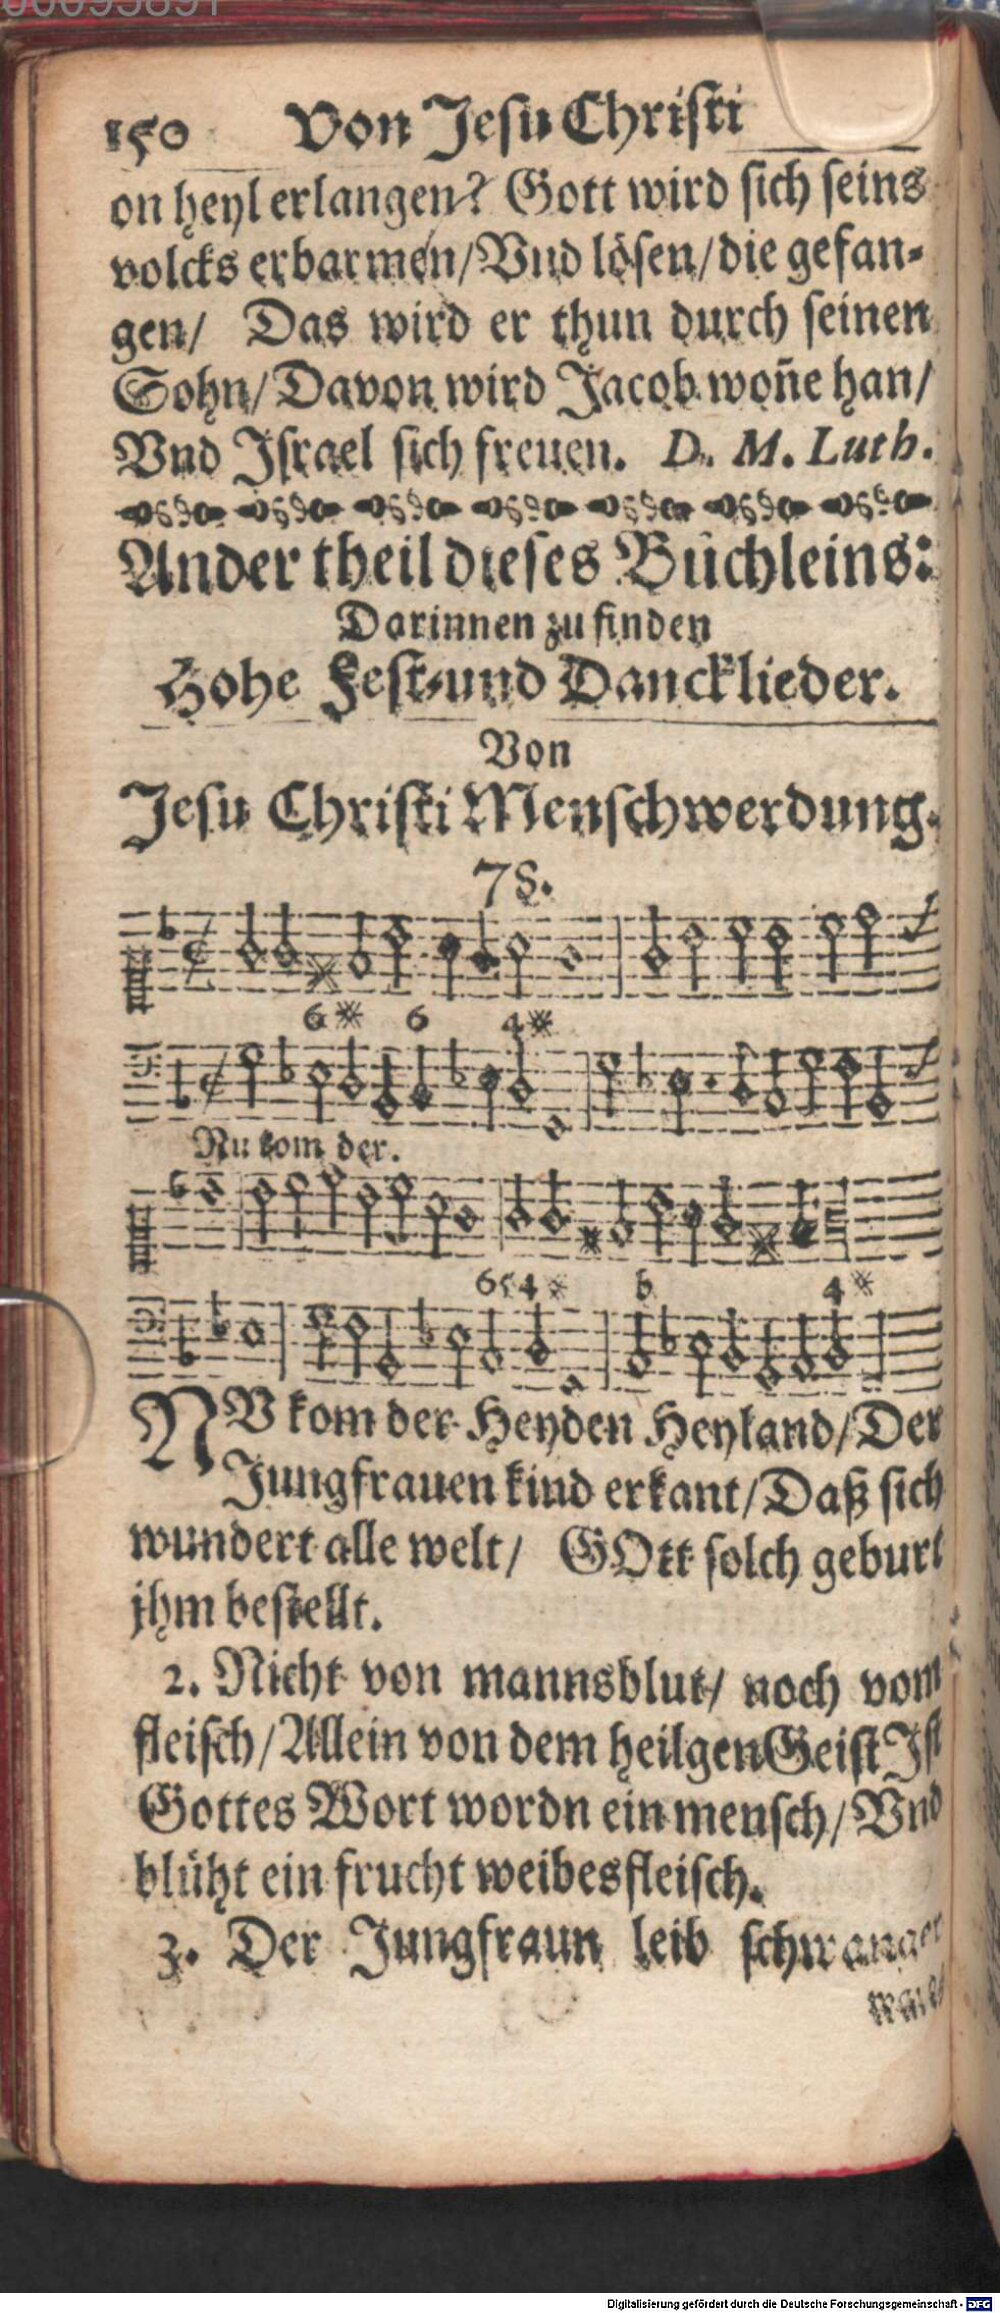 150 Von Jesu Christi
on heyl erlangen? Gott wird sich seins
volcks erbarmen/ Vnd lösen/ die gefan-
gen/ Das wird er thun durch seinen
Sohn/ Davon wird Jacob woñe han/
Vnd Israel sich freuen. D. M. Luth.
Ander theil dieses Büchleins:
Darinnen zu finden
Hohe Fest-und Dancklieder.
Von
Jesu Christi Menschwerdung.
78.
6 * 6 4*
Nu kom der.
6 5 4 * b 4 *
NV kom der Heyden Heyland/ Der
Jungfrauen kind erkant/ Daß sich
wundert alle welt/ GOtt solch geburt
jhm bestellt.
2. Nicht von mannsblut/ noch vom
fleisch/ Allein von dem heilgen Geist Ist
Gottes Wort wordn ein mensch/ Vnd
blüht ein frucht weibesfleisch.
3. Der Jungfraun leib schwanger
Digitalisierung gefördert durch die Deutsche Forschungsgemeinschaft - DFG